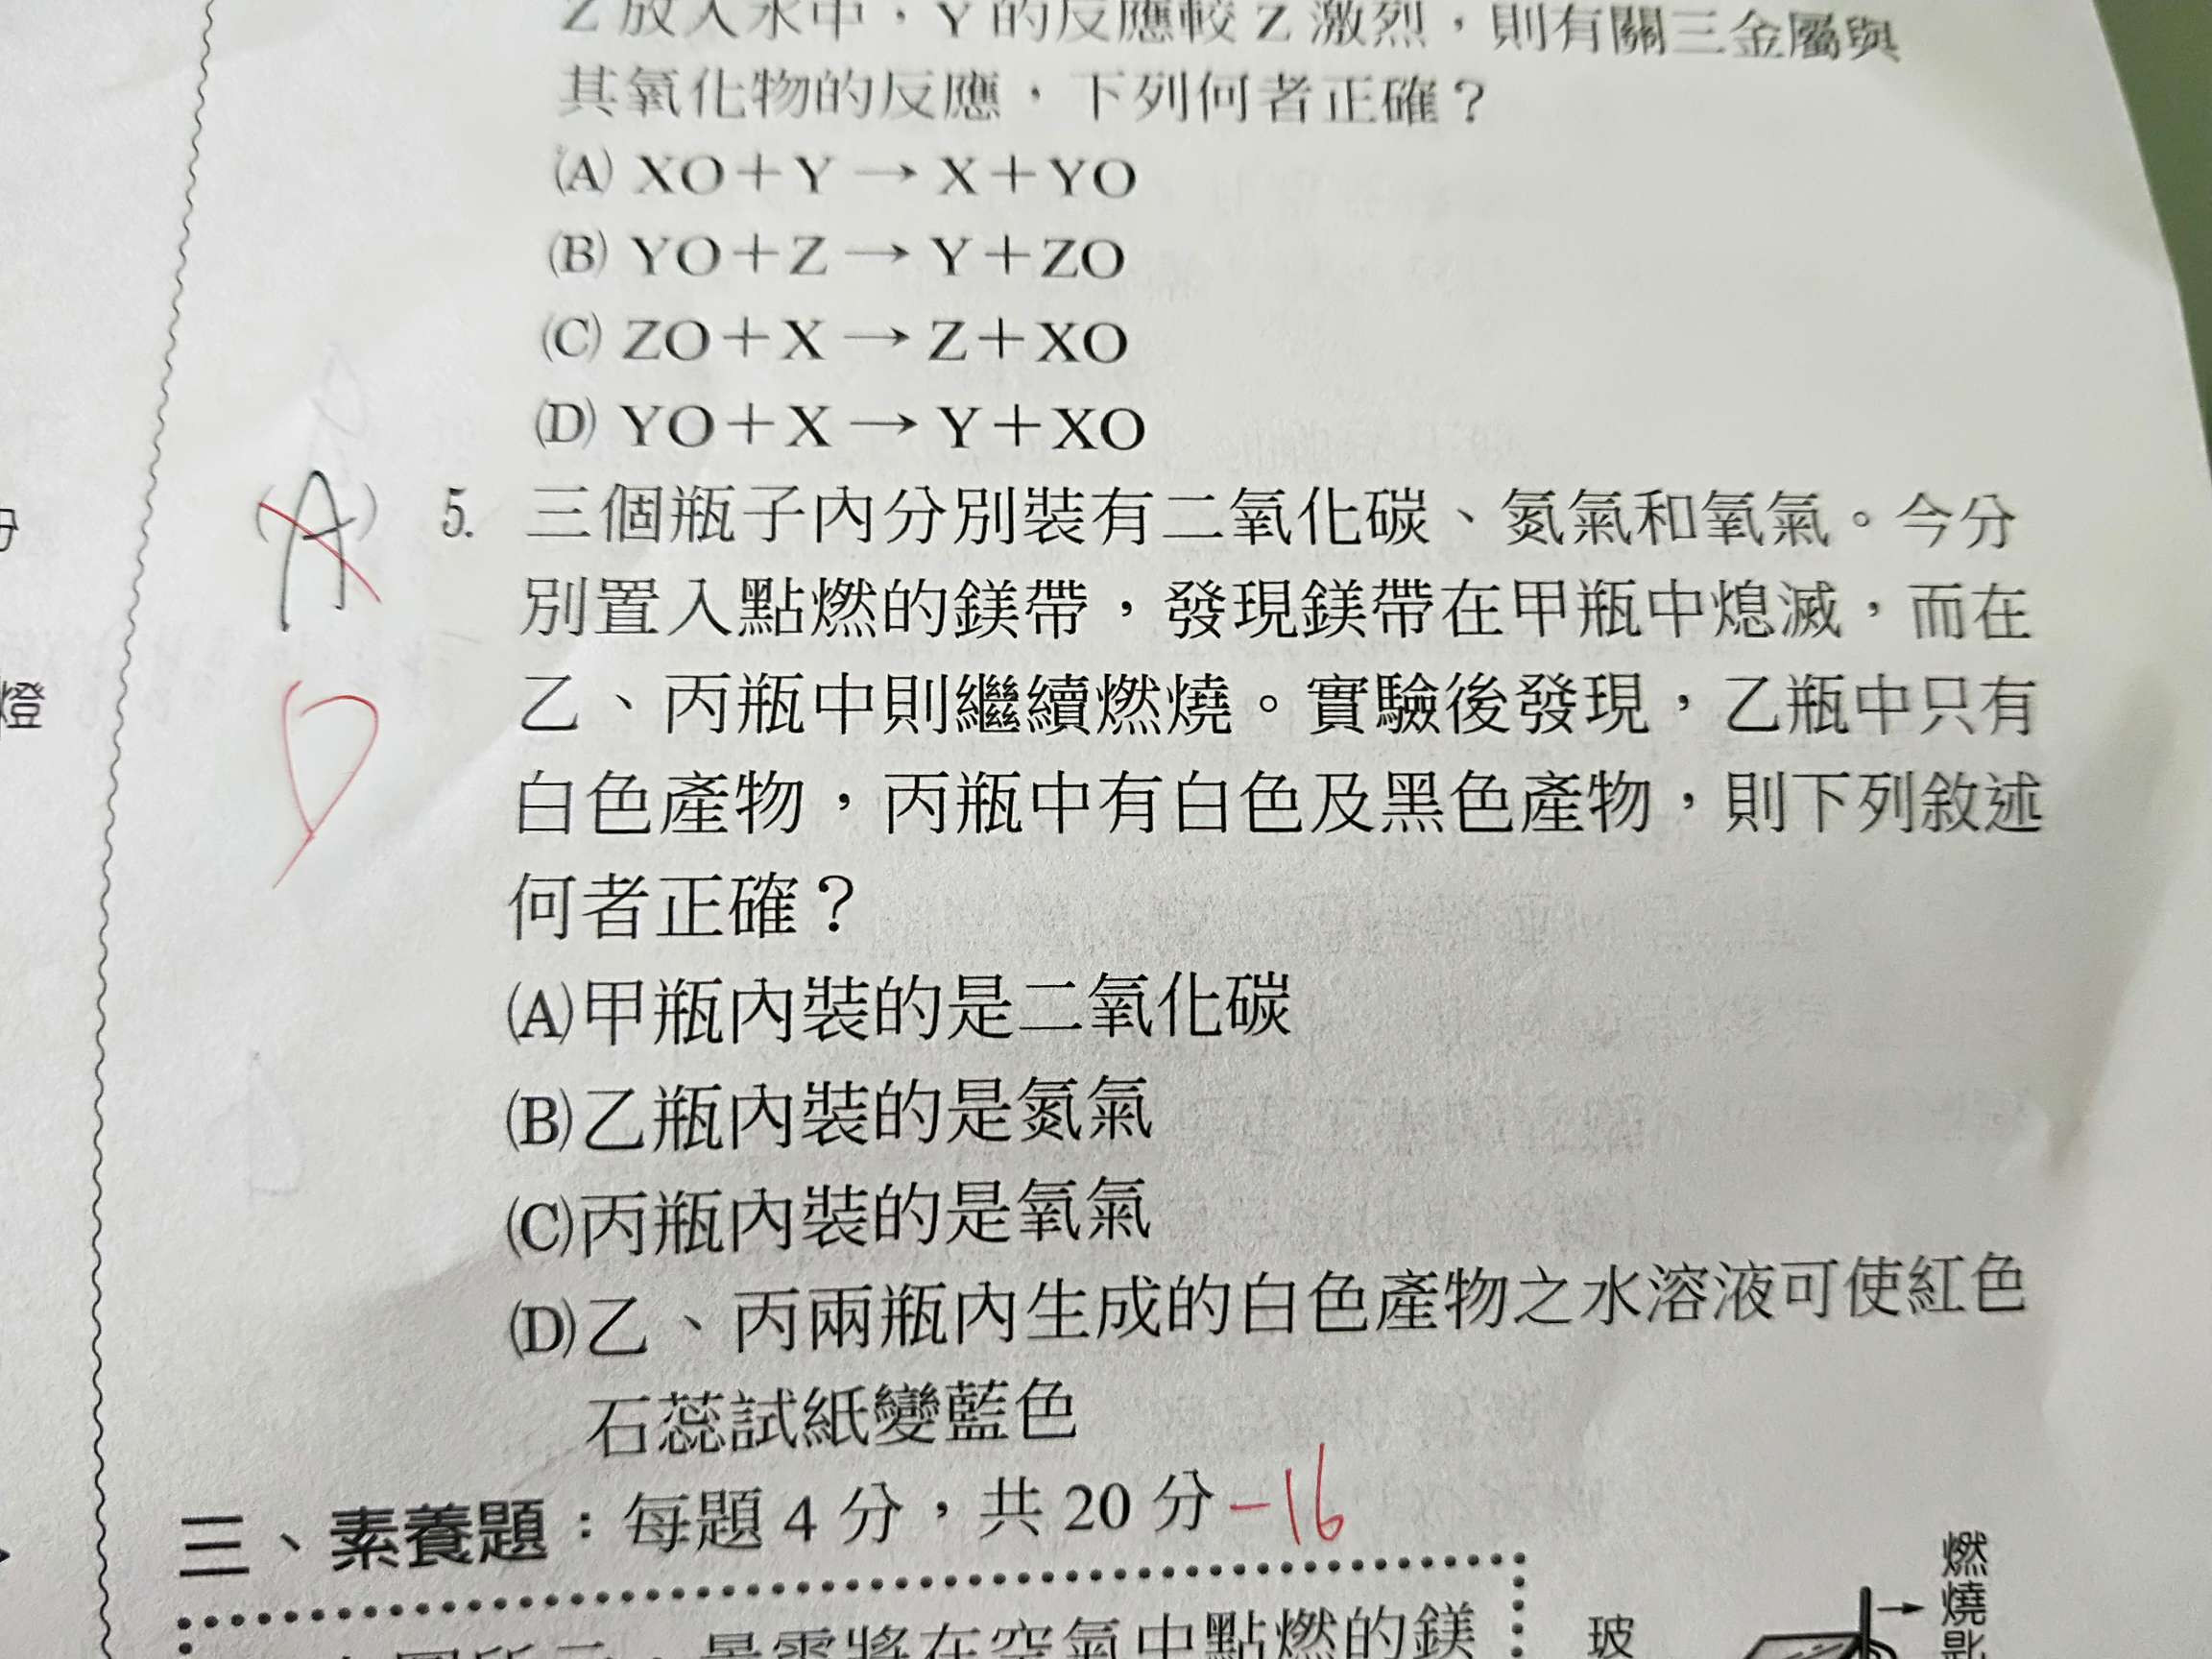 Z放入水中,Y的反應較Z激烈,則有關三金屬與
其氧化物的反應,下列何者正確?
(A) XO+Y→X+YO
(B) YO+Z→Y+ZO
(C) ZO+X→Z+XO
(D) YO+X→Y+XO
(A) 5. 三個瓶子內分別裝有二氧化碳、氮氣和氧氣。今分
別置入點燃的鎂帶,發現鎂帶在甲瓶中熄滅,而在
乙、丙瓶中則繼續燃燒。實驗後發現,乙瓶中只有
D
白色產物,丙瓶中有白色及黑色產物,則下列敘述
何者正確?
(A)甲瓶內裝的是二氧化碳
(B)乙瓶內裝的是氮氣
(C)丙瓶內裝的是氧氣
(D)乙、丙兩瓶內生成的白色產物之水溶液可使紅色
石蕊試紙變藍色
三、素養題:每題 4 分,共 20 分 -16
將在空氣中點燃的鎂
燃燒匙
玻
燈